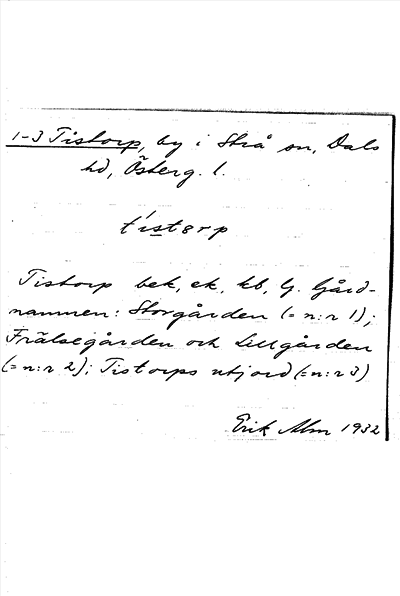 1-3 Tistorp, by i Strå sn, Dals
hd, Österg. l.
tístɛrp
Tistorp bek, ek, kb, lj. Gård-
namnen: Storgården (= n:r 1);
Frälsegården och Lillgården
(= n:r 2); Tistorps utjord (= n:r 3)
Erik Alm 1932